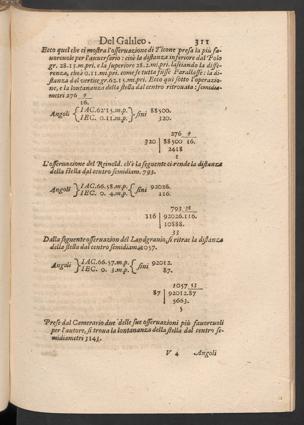 Del Galileo. 311
Ecco quel che ci mostra l'osseruazione di Ticone presa la piu fa-
uoreuole per l'auuersario: cioè la distanza inferiore dal Polo
gr. 28.13.m.pri. e la superiore 28.2.m.pri. lasciando la diffe-
renza, cioè 0.11.m.pri. come se tutta fusse Paralasse: la di-
stanza dal vertice gr. 62.15.m.pri. Ecco qui sotto l'operazio-
ne, e la lontananza della stella dal centro ritrouata: semidia-
metri 276 9
16.
Angoli { IAC.62:15.m.p. } sini 88500.
IEC. 0.11.m.p. 320.
276 9
320 | 88500 16.
2418
1
L'osseruazione del Reinold. ch'è la seguente ci rende la distanza
della stella dal centro semidiam. 793.
Angoli { IAC.66.58.m.p. } sini 92026.
IEC. 0. 4.m.p. 116.
793 38
116 | 92026.116.
10888.
33
Dalla siguente osseruazion del Landgrauio, si ritrae la distanza
della stella dal centro semidiam. 1057.
Angoli { IAC.66.57.m.p. } sini 92012.
IEC. 0. 3.m.p. 87.
1057 53
87 | 92012.87
5663.
5
Prese dal Camerario due delle sue osseruazioni più fauoreuoli
per l'autore, si troua la lontananza della stella dal centro se-
midiametri 3143.
V 4 Angoli